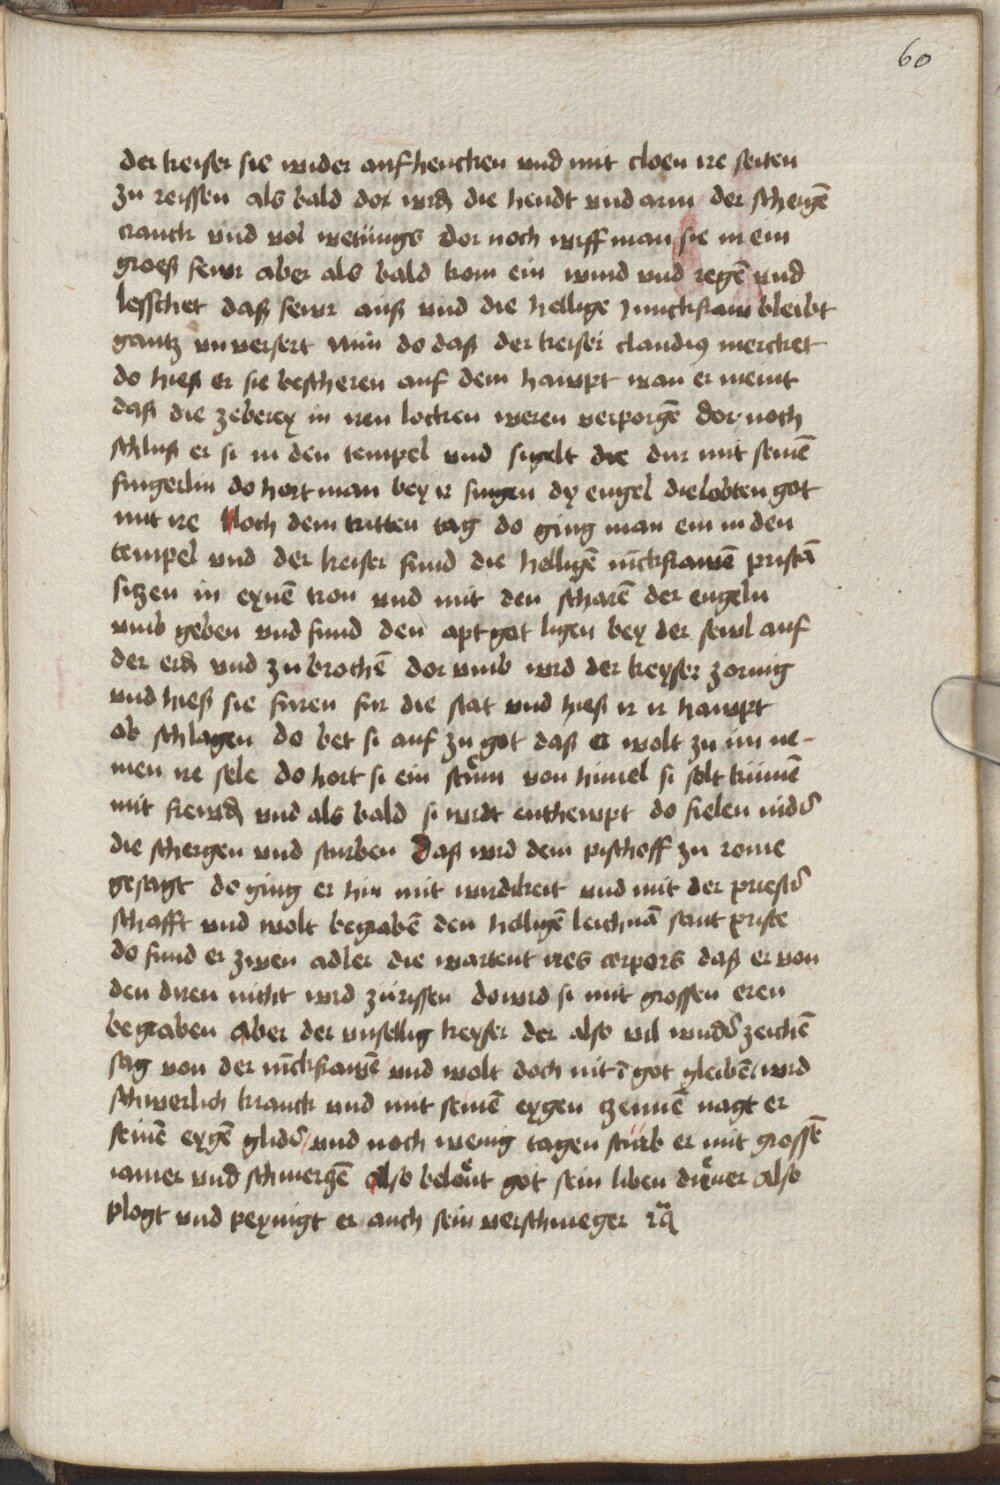 60
der keiser sie wider aufhencken vnd mit cloen ire seiten
zu reissen als bald dor wrd die hendt vnd arm der schergē
cranck vnd vol wetüngs dor noch wirff man sie in ein
groeß fewr aber als bald kom ein wind vnd regē vnd
lesschet daß fewr auß vnd die hellige Junckfraw bleibt
gantz vnuersert Nun do daß der keiser claudiꝰ mercket
do hieß er sie bescheren auf dem hawpt wan er meint
daß die zeberey in iren locken weren verporgē dor noch
schluß er si in den tempel vnd sigelt die dur mit seinē
fingerlin do hort man bey ir singen dy engel die lobten got
mit ire Noch dem tritten tag do ging man ein in den
tempel vnd der keiser fund die helligē iūckfrawē priscā
siczen in eynē tron vnd mit den scharē der engeln
vmb geben vnd fund den aptgot ligen bey der sewl auf
der erd vnd zubrochē dor vmb wrd der keyser zornig
vnd hieß sie furen fur die stat vnd hieß ir ir hawpt
ab schlagen do bet si auf zu got daß er wolt zu im ne-
men ire sele do hort si ein stim von himel si solt kūmē
mit frewd vnd als bald si wrdt enthewpt do fielen nid
die schergen vnd sturben Daß wrd dem pischoff zu rome
gesagt do ging er hin mit wirdikeit vnd mit der priest
schafft vnd wolt begrabē den helligē leichnā sant prisce
do fund er zwen adler die wartent ires corpors daß er von
den diren nicht wrd zürissen do wrd si mit grossen eren
begraben aber der vnsellig keyser der also vil wund zeichē
sag von der iūckfrawē vnd wolt doch nit ī got gleibē wrd
schwerlich kranck vnd mit seinē eygen zennē nagt er
seinē eygē glid vnd noch wenig tagen sturb er mit grossē
iamer vnd schmerczē also belont got sein liben diener also
plogt vnd peynigt er auch sein verschmeger